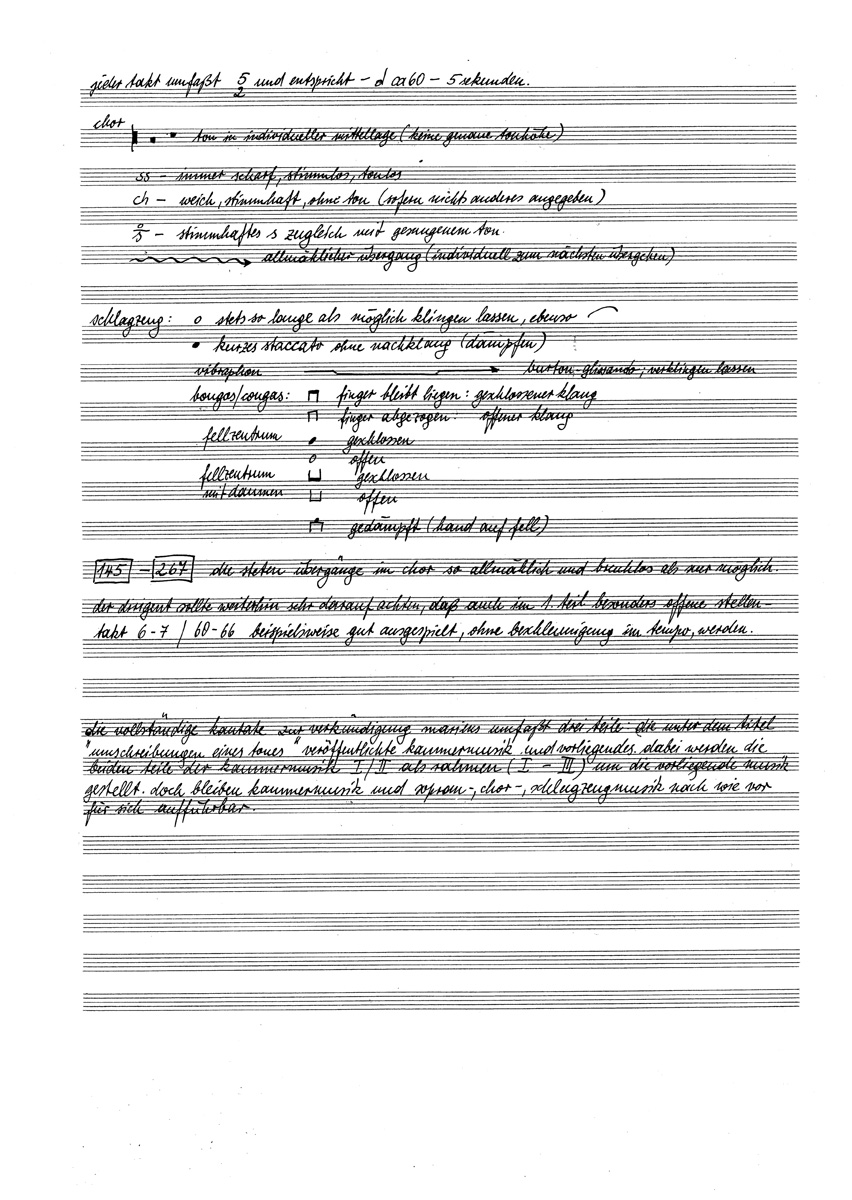 jeder takt umfaßt 5/2 und entspricht – d ca 60 – 5 sekunden.
chor
ton in individueller mittellage (keine genaue tonhöhe)
ss – immer scharf, stimmlos, tonlos
ch – weich, stimmhaft, ohne ton (sofern nichts anderes angegeben)
o/s – stimmhaftes s zugleich mit gesungenem ton.
allmählicher übergang (individuell zum nächsten übergehen)
schlagzeug: o stets so lange als möglich klingen lassen, ebenso
• kurzes staccato ohne nachklang (dämpfen)
vibraphon burton-glissando; verklingen lassen
bongos/congas: finger bleibt liegen: geschlossener klang
finger abgezogen: offener klang
fellzentrum geschlossen
offen
fellzentrum geschlossen
mit daumen offen
gedämpft (hand auf fell)
145 – 267 die steten übergänge im chor so allmählich und bruchlos als nur möglich.
der dirigent sollte weiterhin sehr darauf achten, daß auch im 1. teil besonders offene stellen –
takt 6-7 / 60-66 beispielsweise gut ausgespielt, ohne beschleunigung im tempo, werden.
die vollständige kantate zur verkündigung mariens umfaßt drei teile die unter dem titel
"umschreibungen eines tones" veröffentlichte kammermusik und vorliegendes. dabei werden die
beiden teile der kammermusik I/II als rahmen (I – III) um die vorliegende musik
gestellt. doch bleiben kammermusik und sopran-, chor-, schlagzeugmusik nach wie vor
für sich aufführbar.